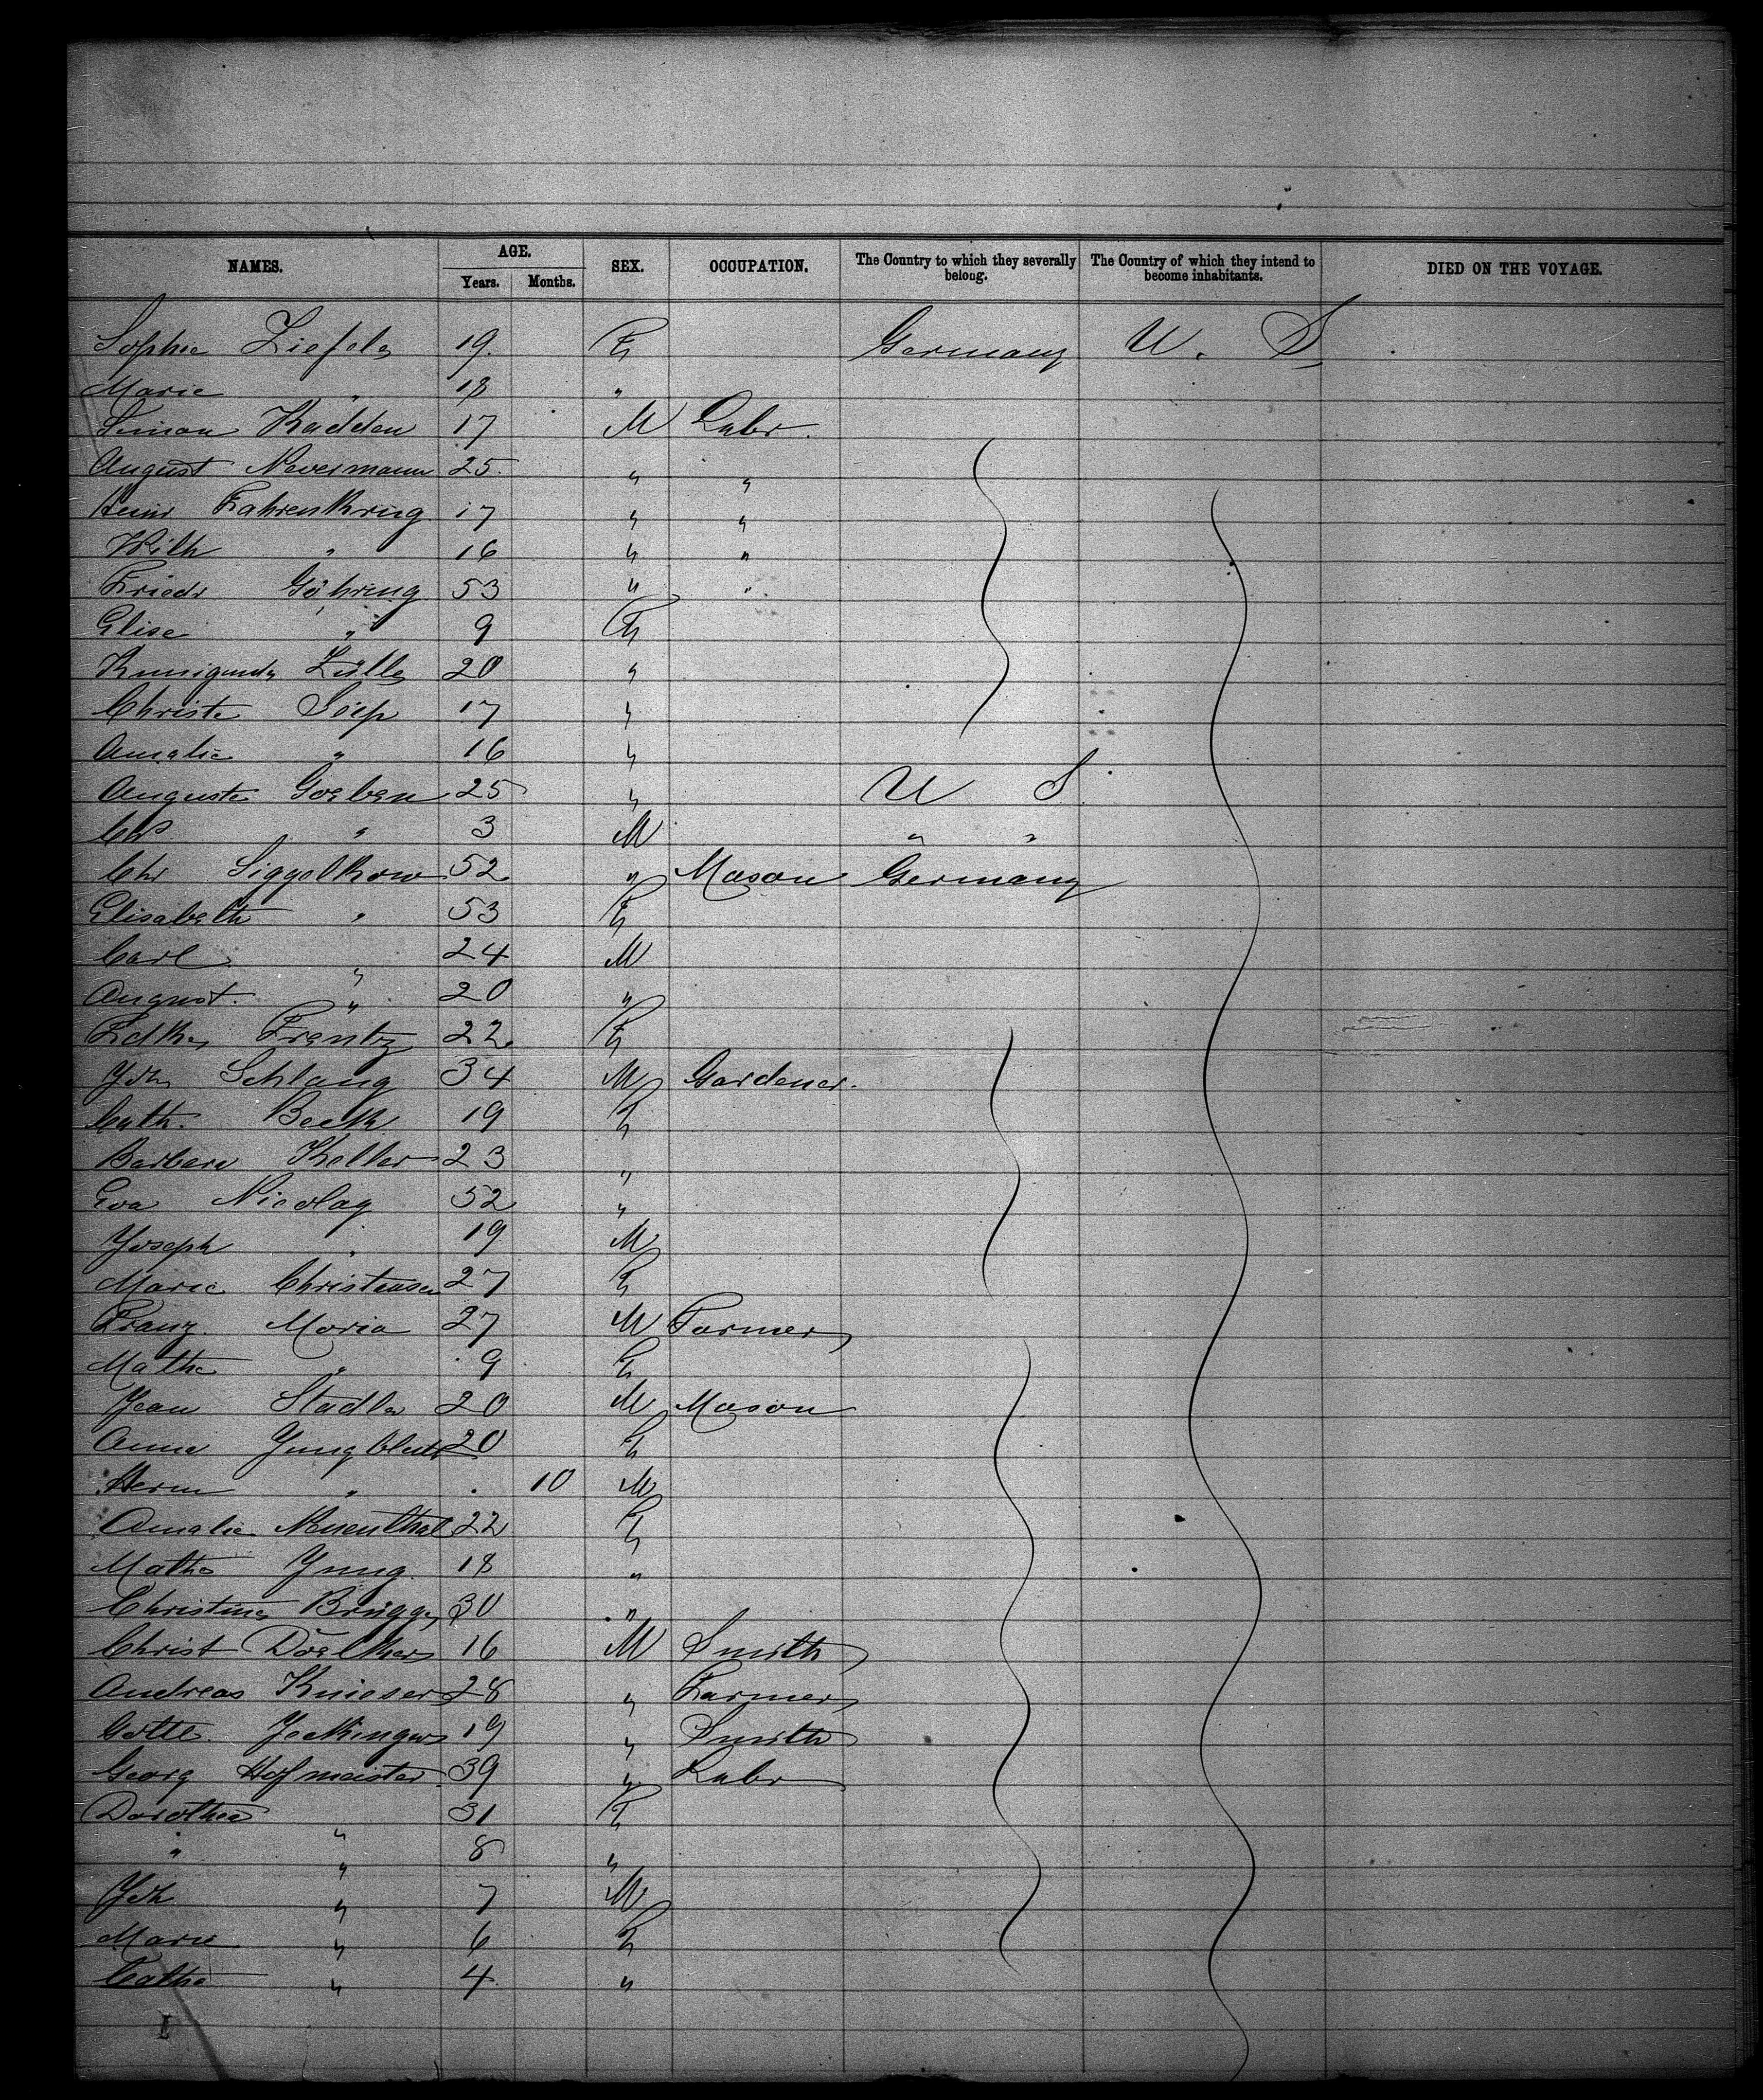 NAMES. AGE. SEX. OCCUPATION. The Country to which they severally belong. The Country of which they intend to become inhabitants. DIED ON THE VOYAGE.
Years. Months.
Sophie 19. F Germany U. S
Marie " 18 "
Simon Kadden 17 M Labr.
August Nevermann 25. " "
Heinr Fahrenkrug 17 " "
Wilh " 16 " "
Friedr Göhring 53 " "
Elise " 9 F
20 "
Christe 17 "
Amalie " 16 "
Auguste Goeben 25 " U S
" 3 M " "
Chr Siggelkow 52 " Mason Germany
Elisabeth " 53 F
Carl " 24 M
August. " 20 "
Frantz 22 F
Joh Schlang 34 M Gardener.
Cath. Beck 19 F
Barbara Keller 23 "
Eva Nicolay 52 "
Joseph " 19 M
Marie Christensen 27 F
Franz. Moria 27 M Farmer
Mathe " 9 F
Jean Stadler 20 M Mason
Anna Jungblut 20 F
Herm " . 10 M
Amalie Neuenthal 22 F
Mathe Jung. 18 "
Christine Brügge 30 "
Christ Doelker 16 M Smith
Andreas Knieser 28 " Farmer
Gottl. 19 " Smith
Georg Hofmeister 39 " Labr
Dorothea " 31 F
" " 8 "
Joh " 7 M
Marie " 6 F
Cathe " 4 "